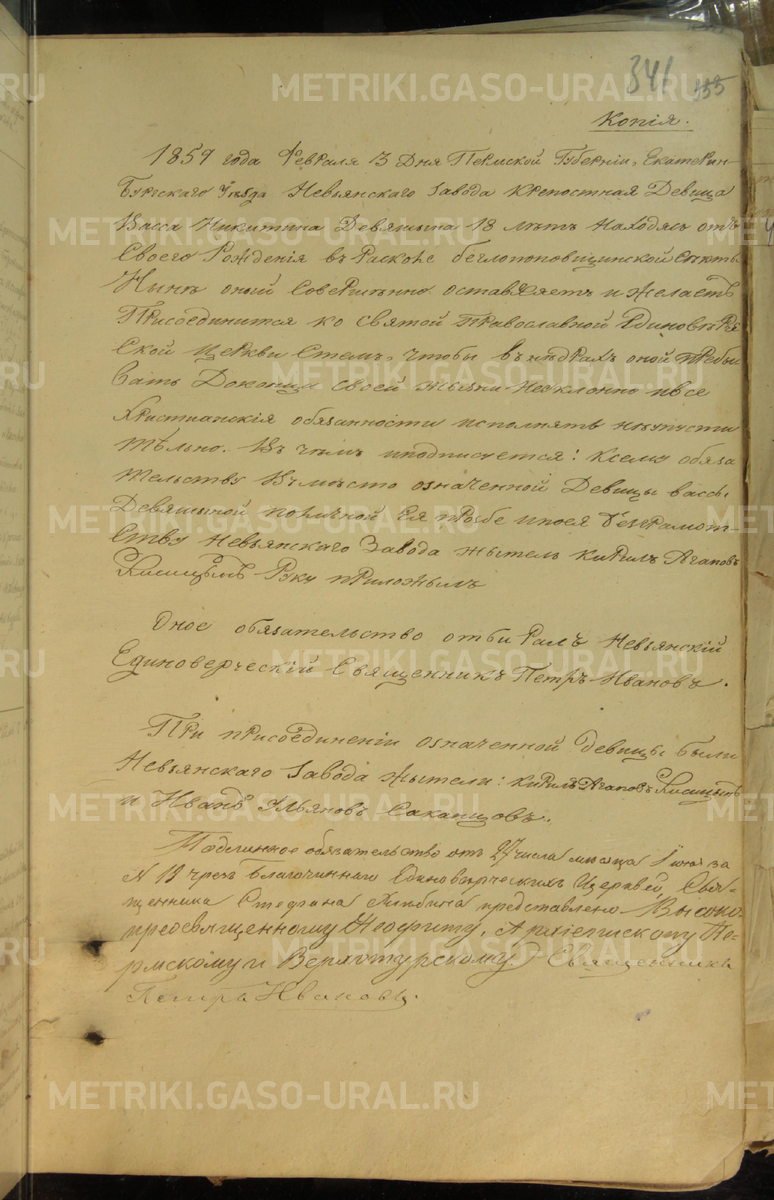 341 155
Копія.
1859 года Февраля 3 дня Пермской Губерніи, Екатерин-
бургскаго Уѣзда Невьянскаго завода крепостная Девица
Васса Никитина Девяшина 18 лѣтъ находясь отъ
своего рожденія въ Расколе беглопоповщинской секты
Нынѣ оный совершенно оставляетъ и желаетъ
Присоединится ко святой православной Единоверче
ской церкви стемъ, чтобы внѣдрахъ оной пребы
вать до конца своей жызни неуклонно ивсе
христианскія обязанности исполнять неупусти
тельно. Въ чемъ иподписуется! Ксему обяза
тельству Вместо означенной Девицы Вассы
Девяшиной поличной Ея прозбе инеея безграмот-
ству Невьянскаго Завода жытель Кирилъ Агаповъ
Руку приложылъ
Оное обязательство отбиралъ Невьянскій
Единоверческій Священникъ Петръ Ивановъ.
При присоединеніи означенной девицы были
Невьянскаго завода жытели: Кирилъ Агаповъ
и Иванъ Ульяновъ Сакапцовъ.
Таковое обязательство отъ 27 числа месяца Іюня за
№ 13 чрезъ Благочиннаго Единоверческихъ Церквей, Свя-
щенника Стефана представлено Высоко-
преосвященному Неофиту, Архіепископу Пе-
рмскому и Верхотурскому. Священникъ
Петръ Ивановъ.
METRIKI.GASO-URAL.RU